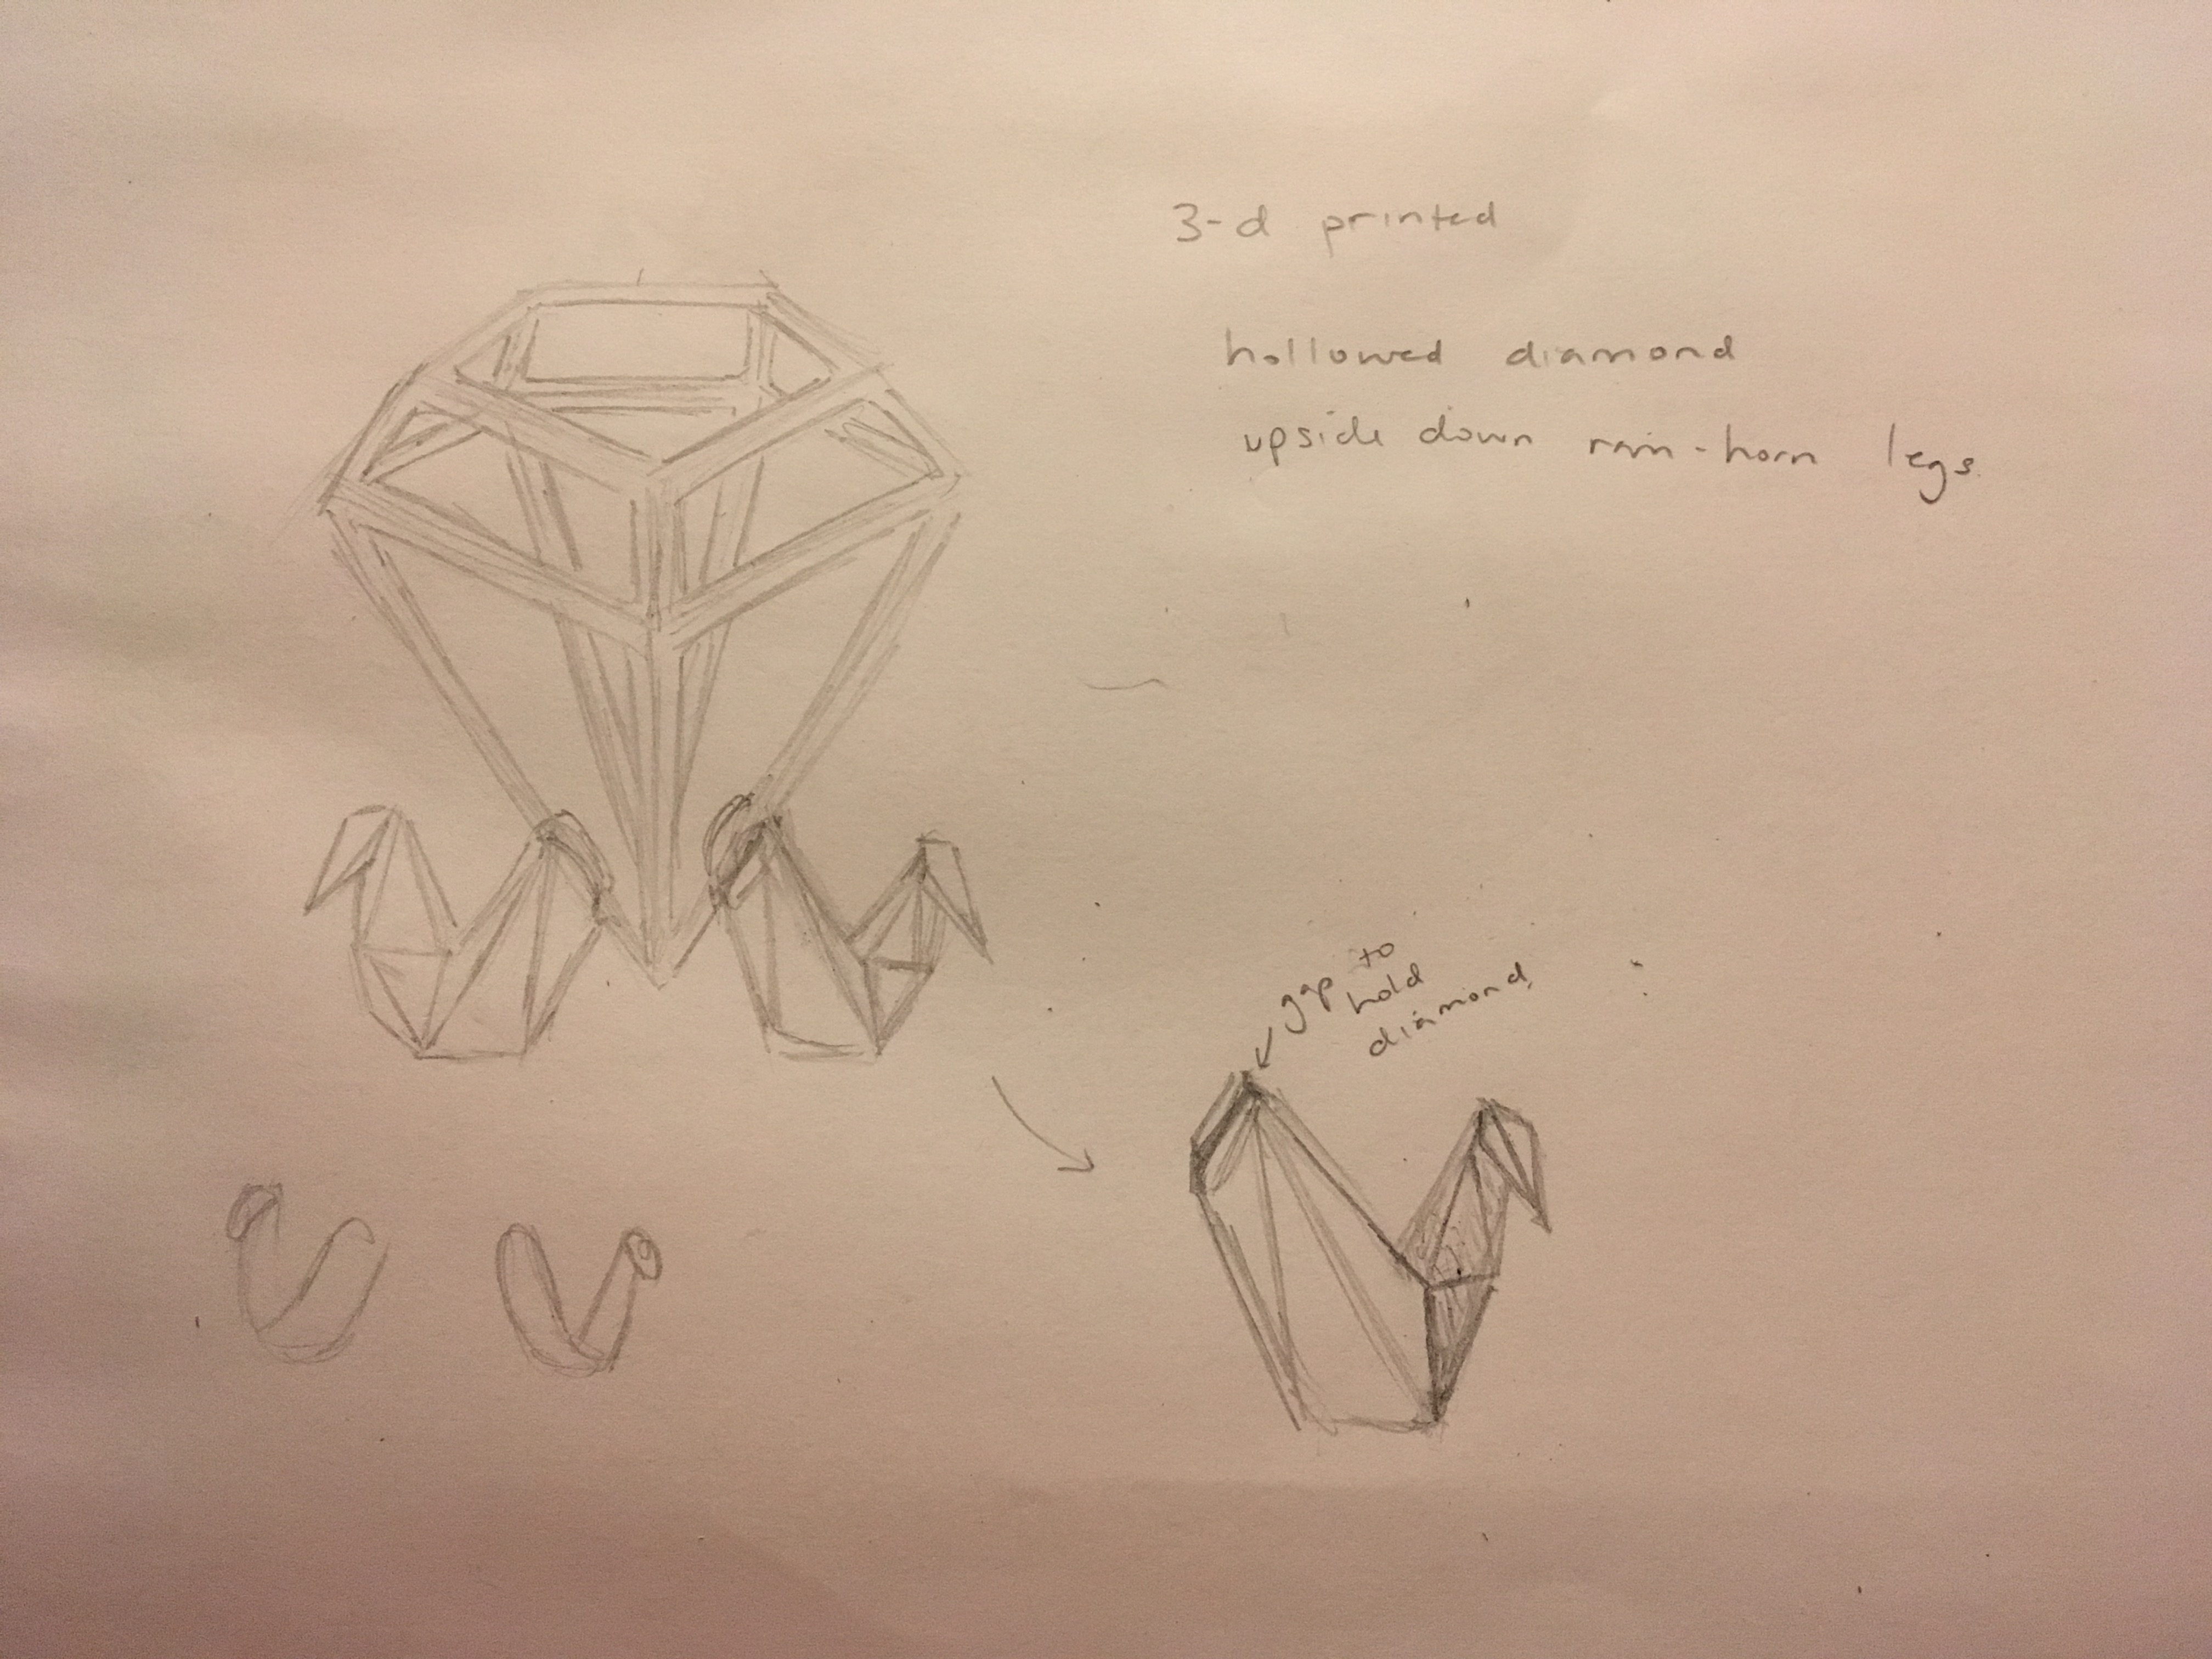 3-d printed
hollowed diamond
upside down ram-horn legs.
gap to
hold
diamond